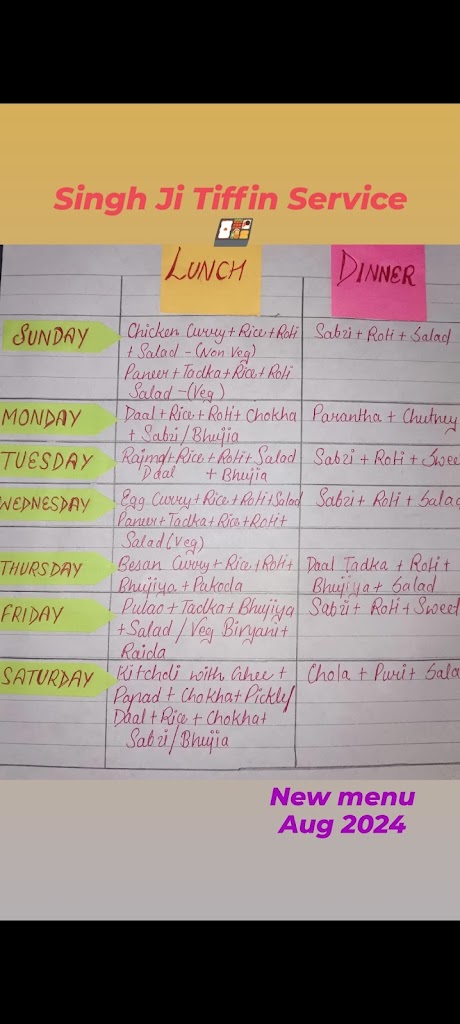 Singh Ji Tiffin Service
LUNCH
DINNER
SUNDAY
Chicken Curry + Rice + Roti
+ Salad - (Non Veg)
Paneer + Tadka + Rice + Roti
Salad - (Veg)
Sabzi + Roti + Salad
MONDAY
Daal + Rice + Roti + Chokha
+ Sabzi / Bhujia
Parantha + Chutney
TUESDAY
Rajma + Rice + Roti + Salad
Daal + Bhujia
Sabzi + Roti + Swee
WEDNESDAY
Egg Curry + Rice + Roti + Salad
Paneer + Tadka + Rice + Roti +
Salad (Veg)
Sabzi + Roti + Salad
THURSDAY
Besan Curry + Rice + Roti +
Bhujiya + Pakoda
Daal Tadka + Roti +
Bhujiya + Salad
FRIDAY
Pulao + Tadka + Bhujiya
+ Salad / Veg Biryani +
Raida
Sabzi + Roti + Sweet
SATURDAY
Kitchdi with Ghee +
Papad + Chokha + Pickle /
Daal + Rice + Chokha +
Sabzi / Bhujia
Chola + Puri + Sala
New menu
Aug 2024